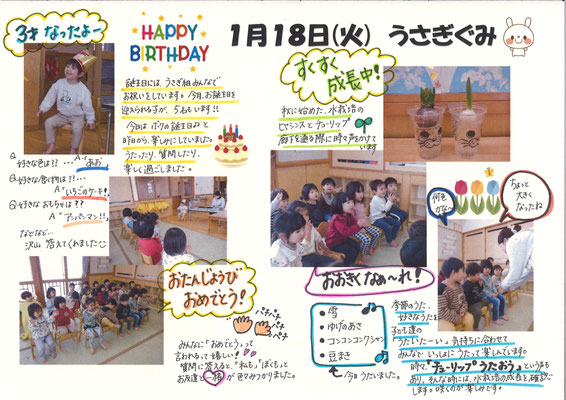 3才 なったよー
HAPPY
BIRTHDAY
1月18日(火) うさぎぐみ
誕生日には、うさぎ組みんなで
お祝いをしています。今月、お誕生日を
迎えられる子が、5名もいます!!
今回は ボクの誕生日♫と
昨日から、楽しみにしていました。
うたったり、質問したり、
楽しく過ごしました。
Q 好きな色は?? … A・「あお」
Q・好きな食べ物は??…
A「いちごのケーキ!」
Q・好きな おもちゃは??
A「アンパンマン!!」
などなど…
沢山 答えてくれました
すくすく
成長中!
秋に始めた、水栽培の
ヒヤシンスと チューリップ
廊下を通る際に 時々 声をかけて
います
何色
かな〜
ちょっと
大きく
なったね
おたんじょうび
おめでとう!
パチパチ
パチ
パチ
みんなに「おめでとう」って
言われるって 嬉しい!
質問に答えると、「私も」「ぼくも」と
お友達と 一緒 が 色々みつかりました。
おおきくなぁ〜れ!
・雪
・ゆげのあさ
・コンコンコンクシャン
・豆まき
今日 うたいました。
季節のうた、
好きなうたを
子ども達の
「うたいたーい」気持ちに合わせて
みんなで いっしょに うたって 楽しんでいます。
時々、「チューリップうたおう」という声も
あり、そんな時には、水栽培の成長を、確認
します。咲くのが 楽しみです。